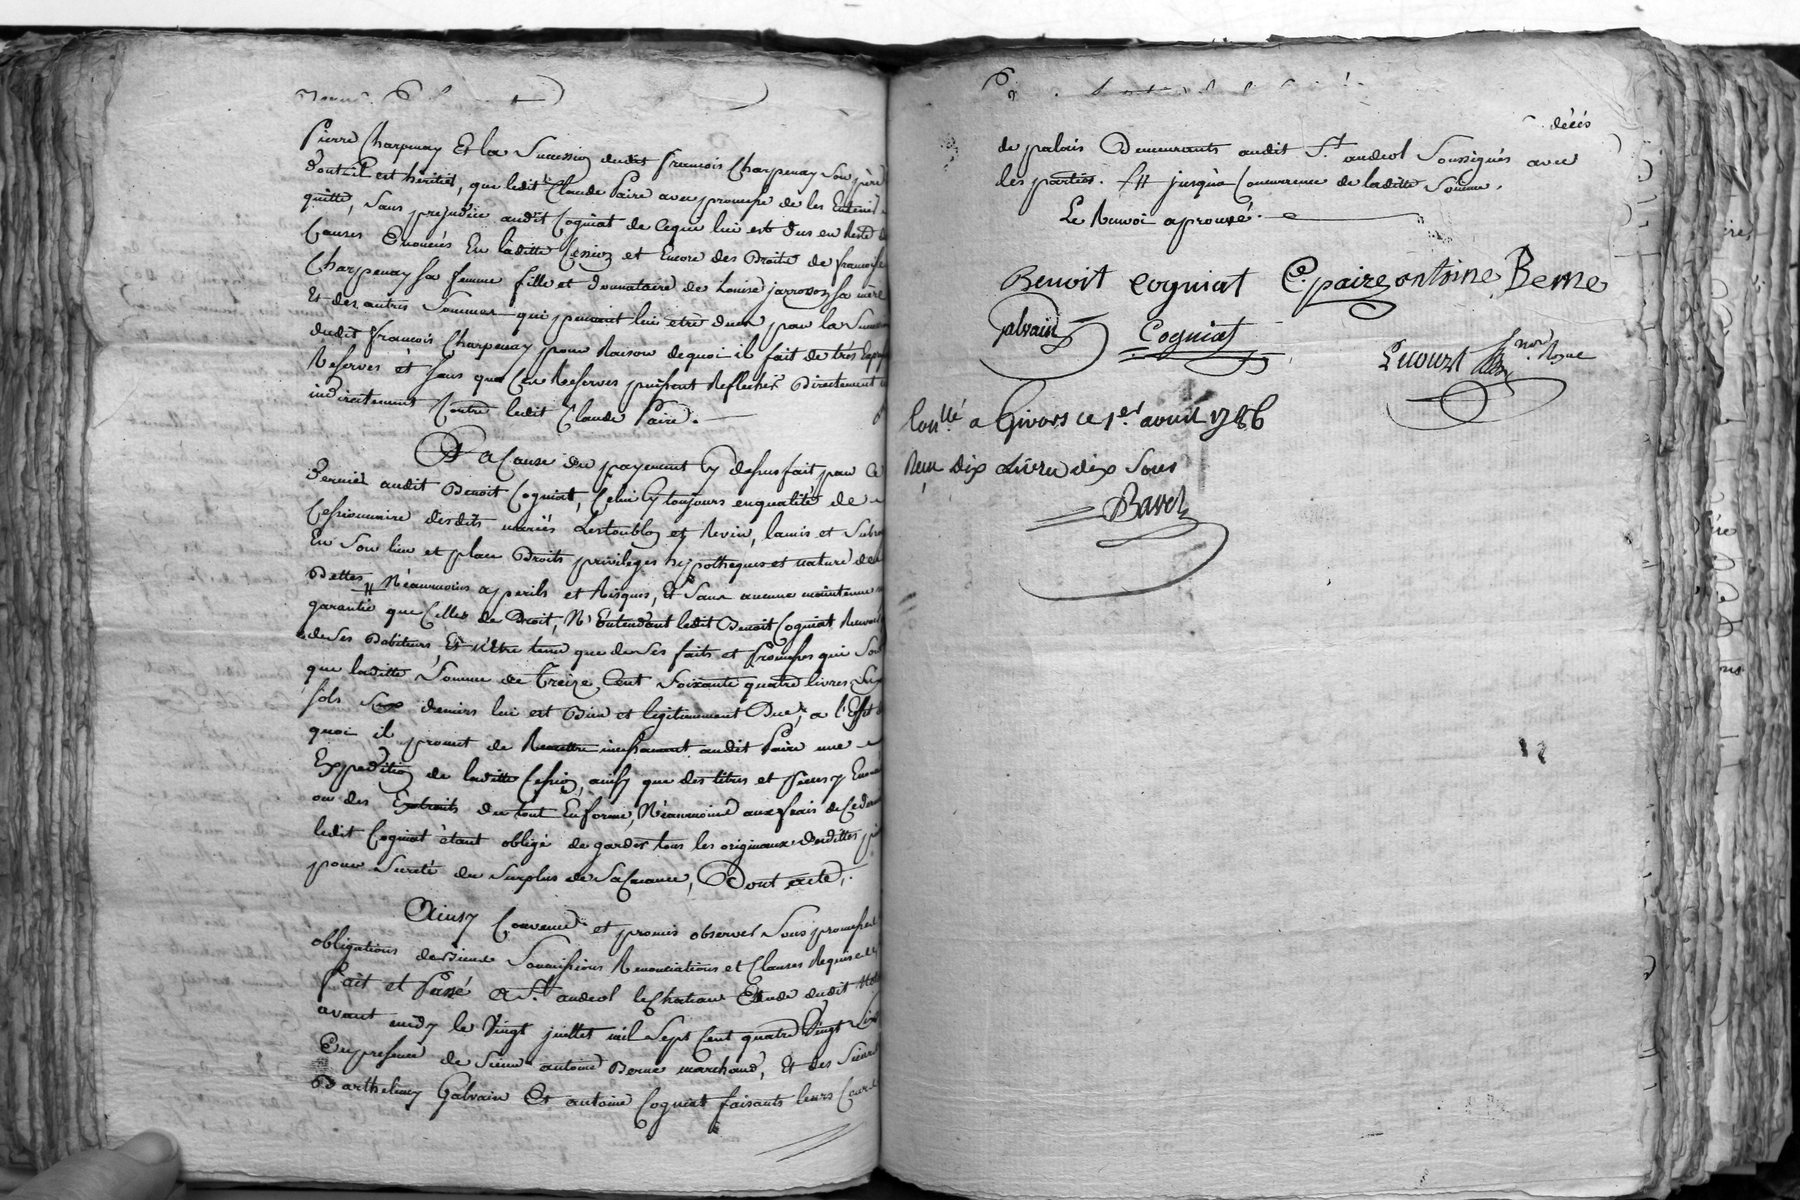 Pierre Charpenay Et la Succession dudit francois Charpenay Son père
Dont il est héritiér, que ledit Claude Paire avec promesse de les Entenir
quitte, Sans préjudice audit Cogniat de cequi lui est dus en Reste
Causes Enoncéés En laditte Cession et Encore des Droits de francoise
Charpenay Sa femme fille et donnatairé de Louise jarrosson Sa mère
Et des autres Sommes qui peuvent lui etre dues par la
dudit francois Charpenay pour Raison dequoi il fait de très
Reserves et Sans que Ces Reserves puissent Reflechir Directement
indirectement Contre ledit Claude Paire.
A Cause du payement Cy dessus fait par Ce
Dernier audit Benoit Cogniat, Celui Cy toujours enqualité de
Cessionnaire desdits mariés Lestoublon et Revin, la mis et
En Son lieu et place Droits privileges hypotheques et nature de
Dettes, # Néanmoins a perils et Risques, Et Sans aucune maintenue
garantie que Celles de Droit, N'Entendant ledit Benoit Cogniat
de Ses Debiteurs Et n'Etre tenu que de Ses faits et promesses qui Sont
que laditte Somme de Treize Cent Soixante quatre livres Six
sols Six deniers lui est Bien et legitimement Due, a l'Effet de
quoi il promet de Remettre incessament audit Paire une
Expedition de laditte Cession, ainsy que des titres et pieces y
ou des Extraits du tout En forme, Néanmoins aux frais de Ce dernier
ledit Cogniat étant obligé de garder tous les originaux desdittes
pour Sureté du Surplus de Sa Creance, Dont acte,.
Ainsy Convenu et promis observer Sous promesses
obligations de Biens Soumissions Renonciations et Clauses Requises
Fait et Passé A St. andeol le Chateau Etude dudit
avant midy le Vingt juillet mil Sept Cent quatre Vingt
En presence de Sieur antoine Berne marchand, Et des Sieurs
Barthelemy Galvain Et antoine Cogniat faisants leurs Cours
décés
de palais Demeurants audit St. andeol Soussignés avec
les parties. # jusqu'à Concurrence de laditte Somme.
Le Renvoi aprouvé.
Benoit Cogniat C. paire antoine Berne
Galvain Cogniat
Lecourt
Conllé a Givors ce 1er. avril 1786
Reçu dix Livres dix Sous
Bavet